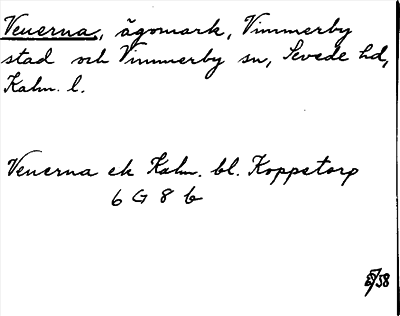 Venerna, ägomark, Vimmerby
stad och Vimmerby sn, Sevede hd,
Kalm. l.
Venerna ek Kalm. bl. Koppetorp
6 G 8 b